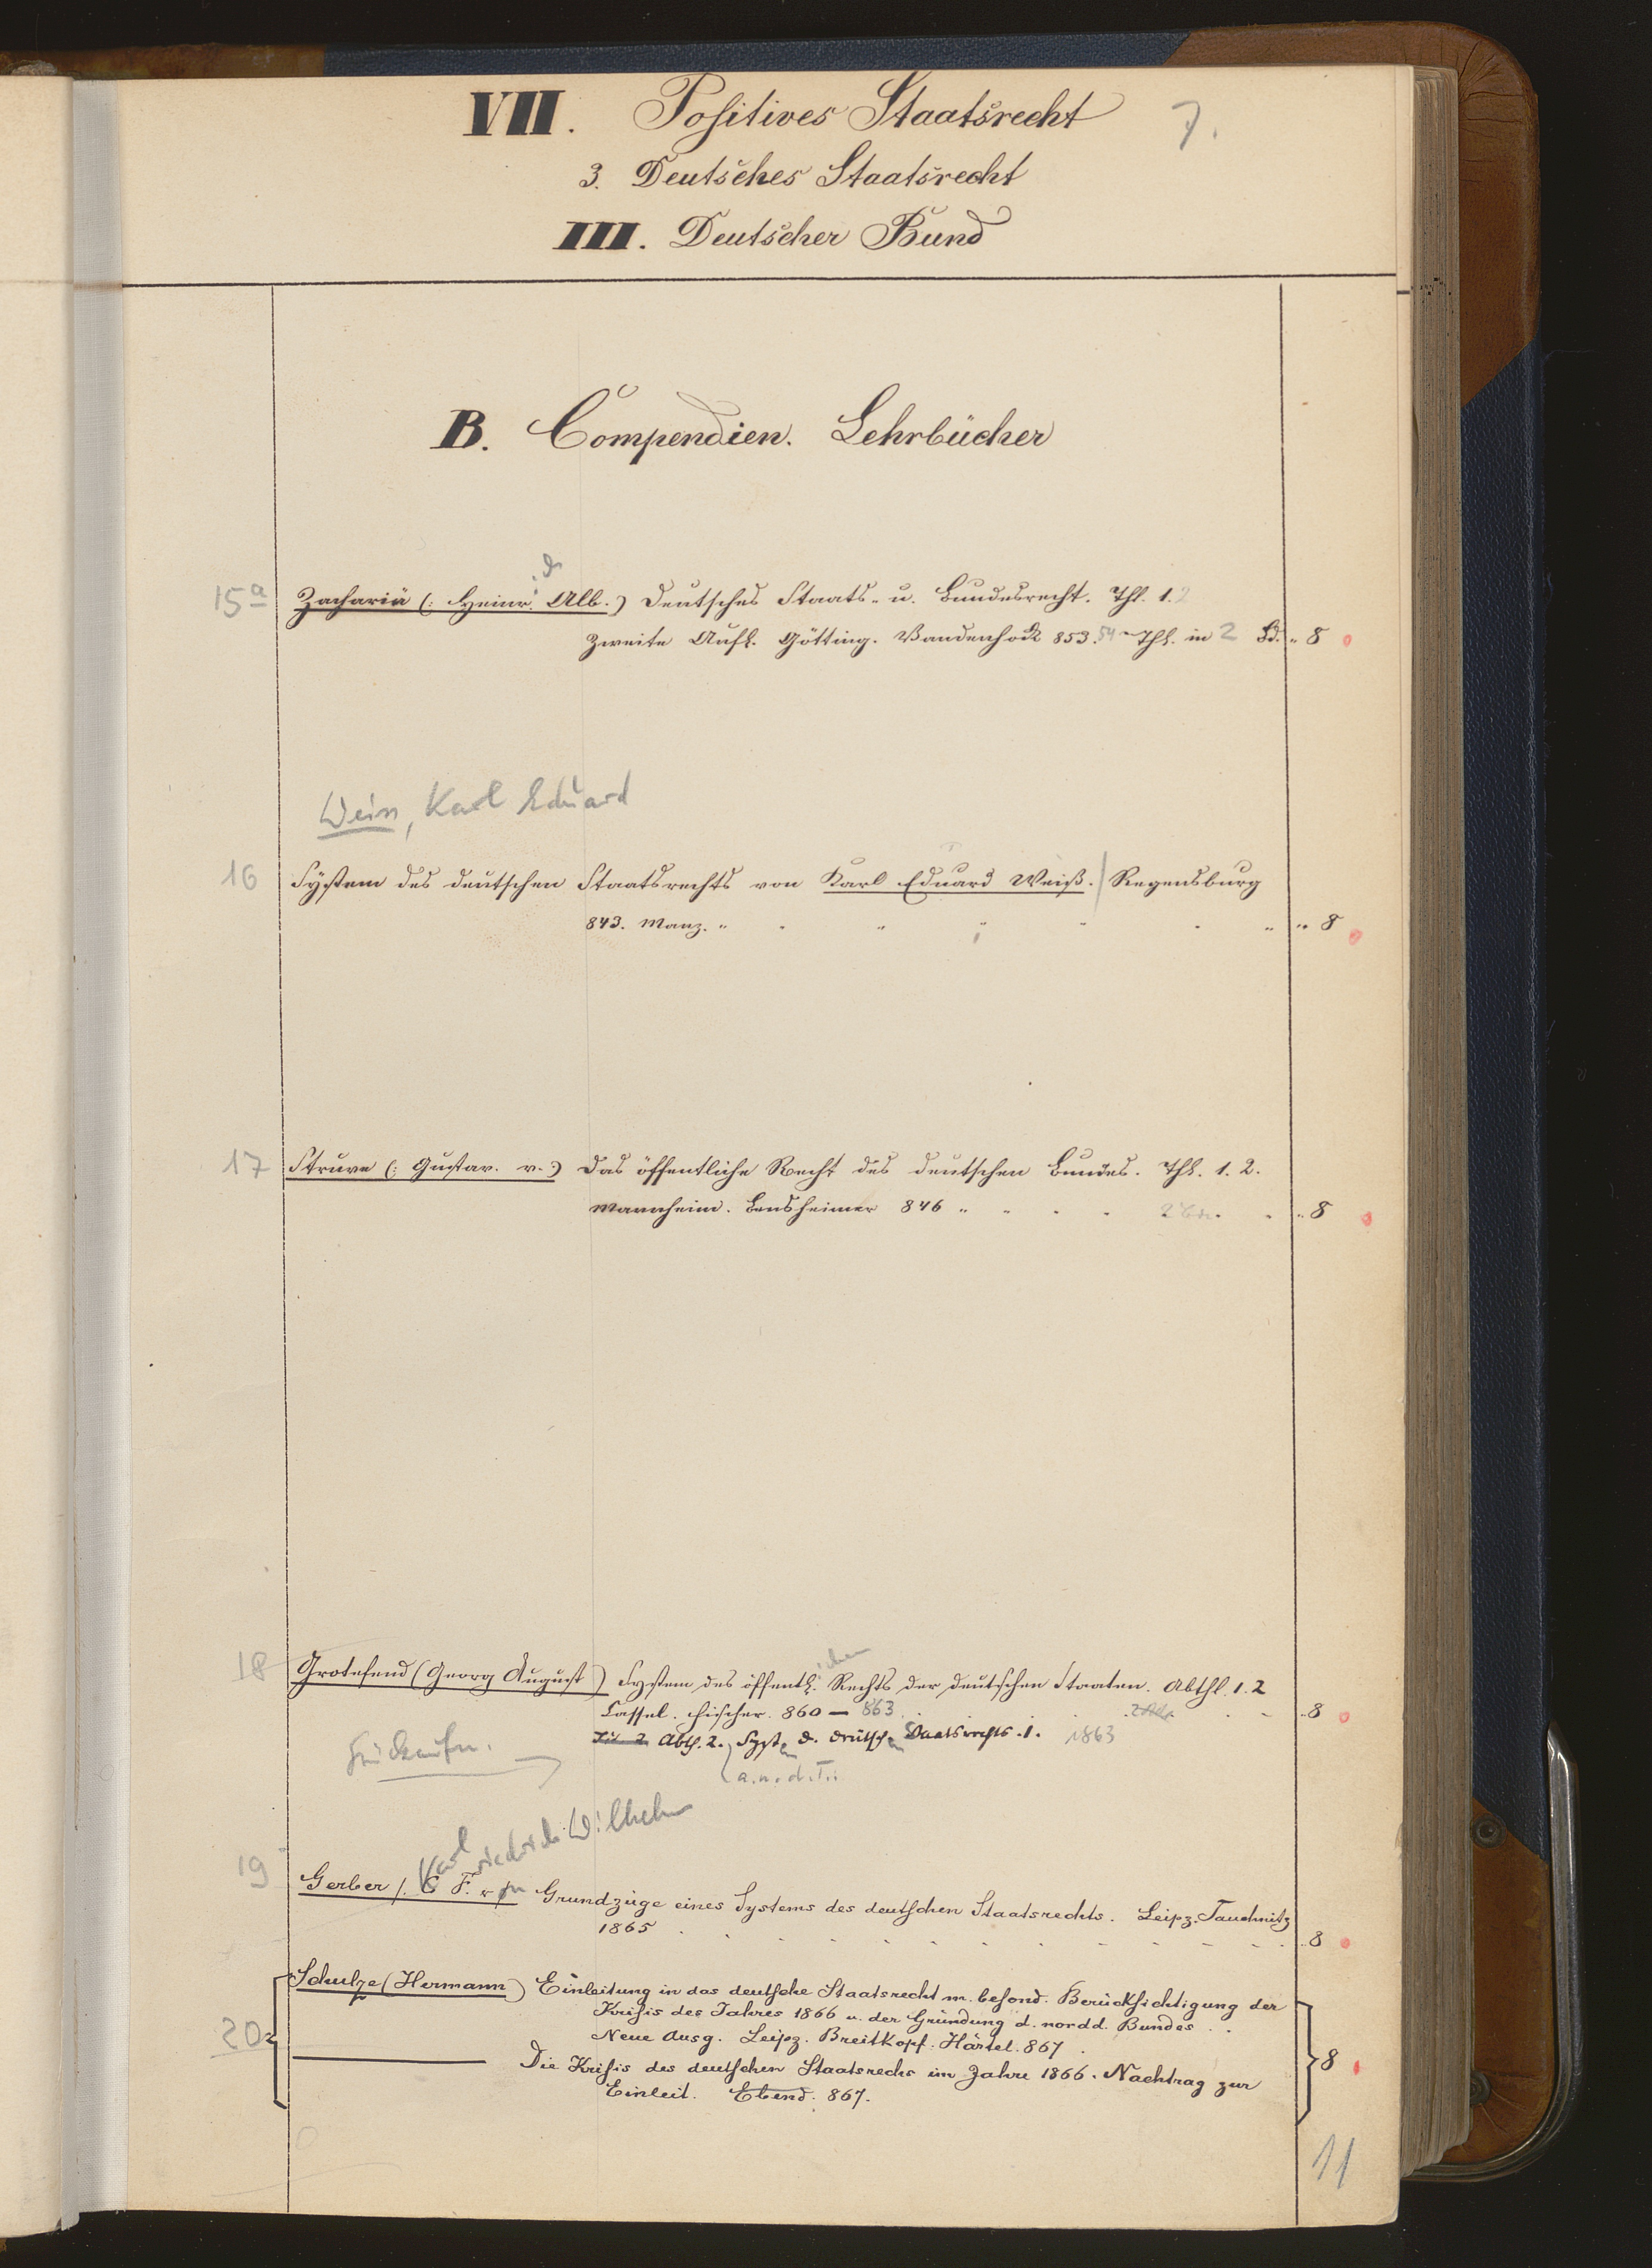 VII. Positives Staatsrecht 7.
3. Deutsches Staatsrecht
III. Deutscher Bund
B. Compendien. Lehrbücher
15a Zachariä (: Heinr. Alb.) Deutsches Staats- u. Bundesrecht. Thl. 1. 2
Zweite Aufl. Götting. Vandenhock 853. 54 Thl. in 2 Bd. " 8
Weiss, Karl Eduard
16 System des deutschen Staatsrechts von Karl Eduard Weiß. Regensburg
843. Manz. " 8
17 Struve (: Gustav. v. :) Das öffentliche Recht des deutschen Bundes. Thl. 1. 2.
Mannheim. Bensheimer 846 " 2 Bde. " 8
18 Grotefend (Georg August) System des öffentl. ichen Rechts der deutschen Staaten. Abthl. 1. 2
Cassel. Fischer. 860 — 863 " 8
Abth. 2. Syst. d. deutsch. Staatsrechts. 1. 1863
(a. u. d. T.:
Karl Friedrich Wilhelm
19 Gerber /. C F. v Grundzüge eines Systems des deutschen Staatsrechts. Leipz. Tauchnitz
1865 " 8
Schulze (Hermann) Einleitung in das deutsche Staatsrecht m. besond. Berücksichtigung der
Krisis des Jahres 1866 u. der Gründung d. nordd. Bundes
20 Neue Ausg. Leipz. Breitkopf. Härtel. 867
Die Krisis des deutschen Staatsrechs im Jahre 1866. Nachtrag zur 8
Einleit. Ebend. 867.
11